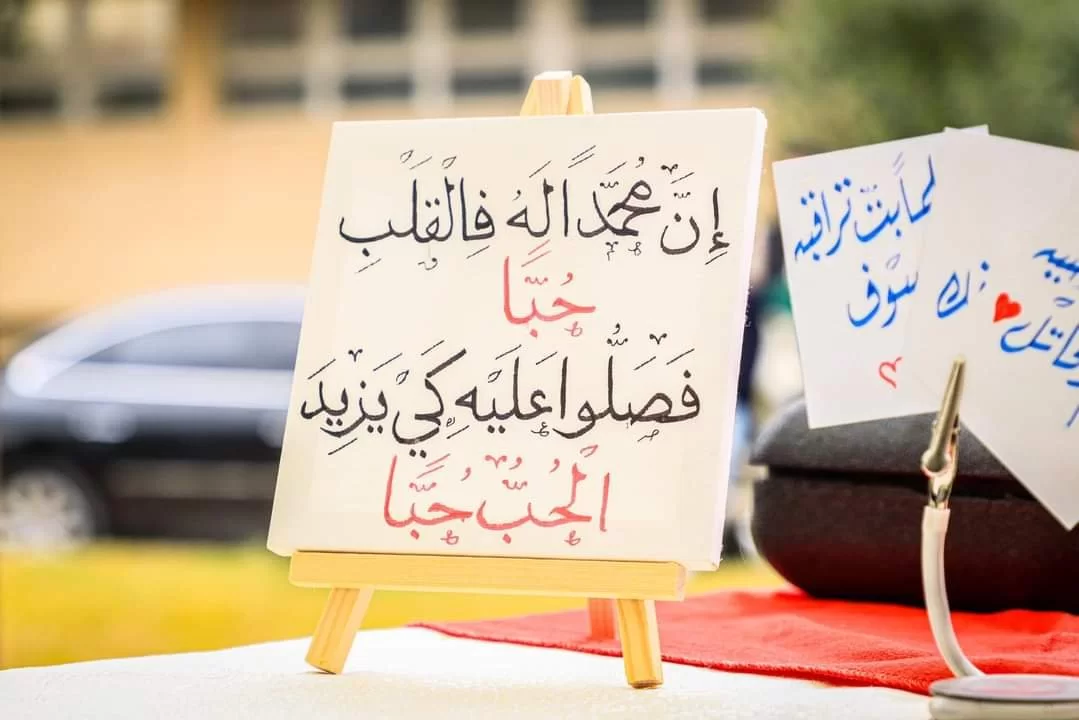 إِنَّ مُحَمَّداً لَهُ فِالْقَلْبِ
حُبَّا
فَصَلُّوا عَلَيْهِ كَيْ يَزِيدَ
الْحُبُّ حُبَّا
لماَبتّ تراقبَه
سوْف